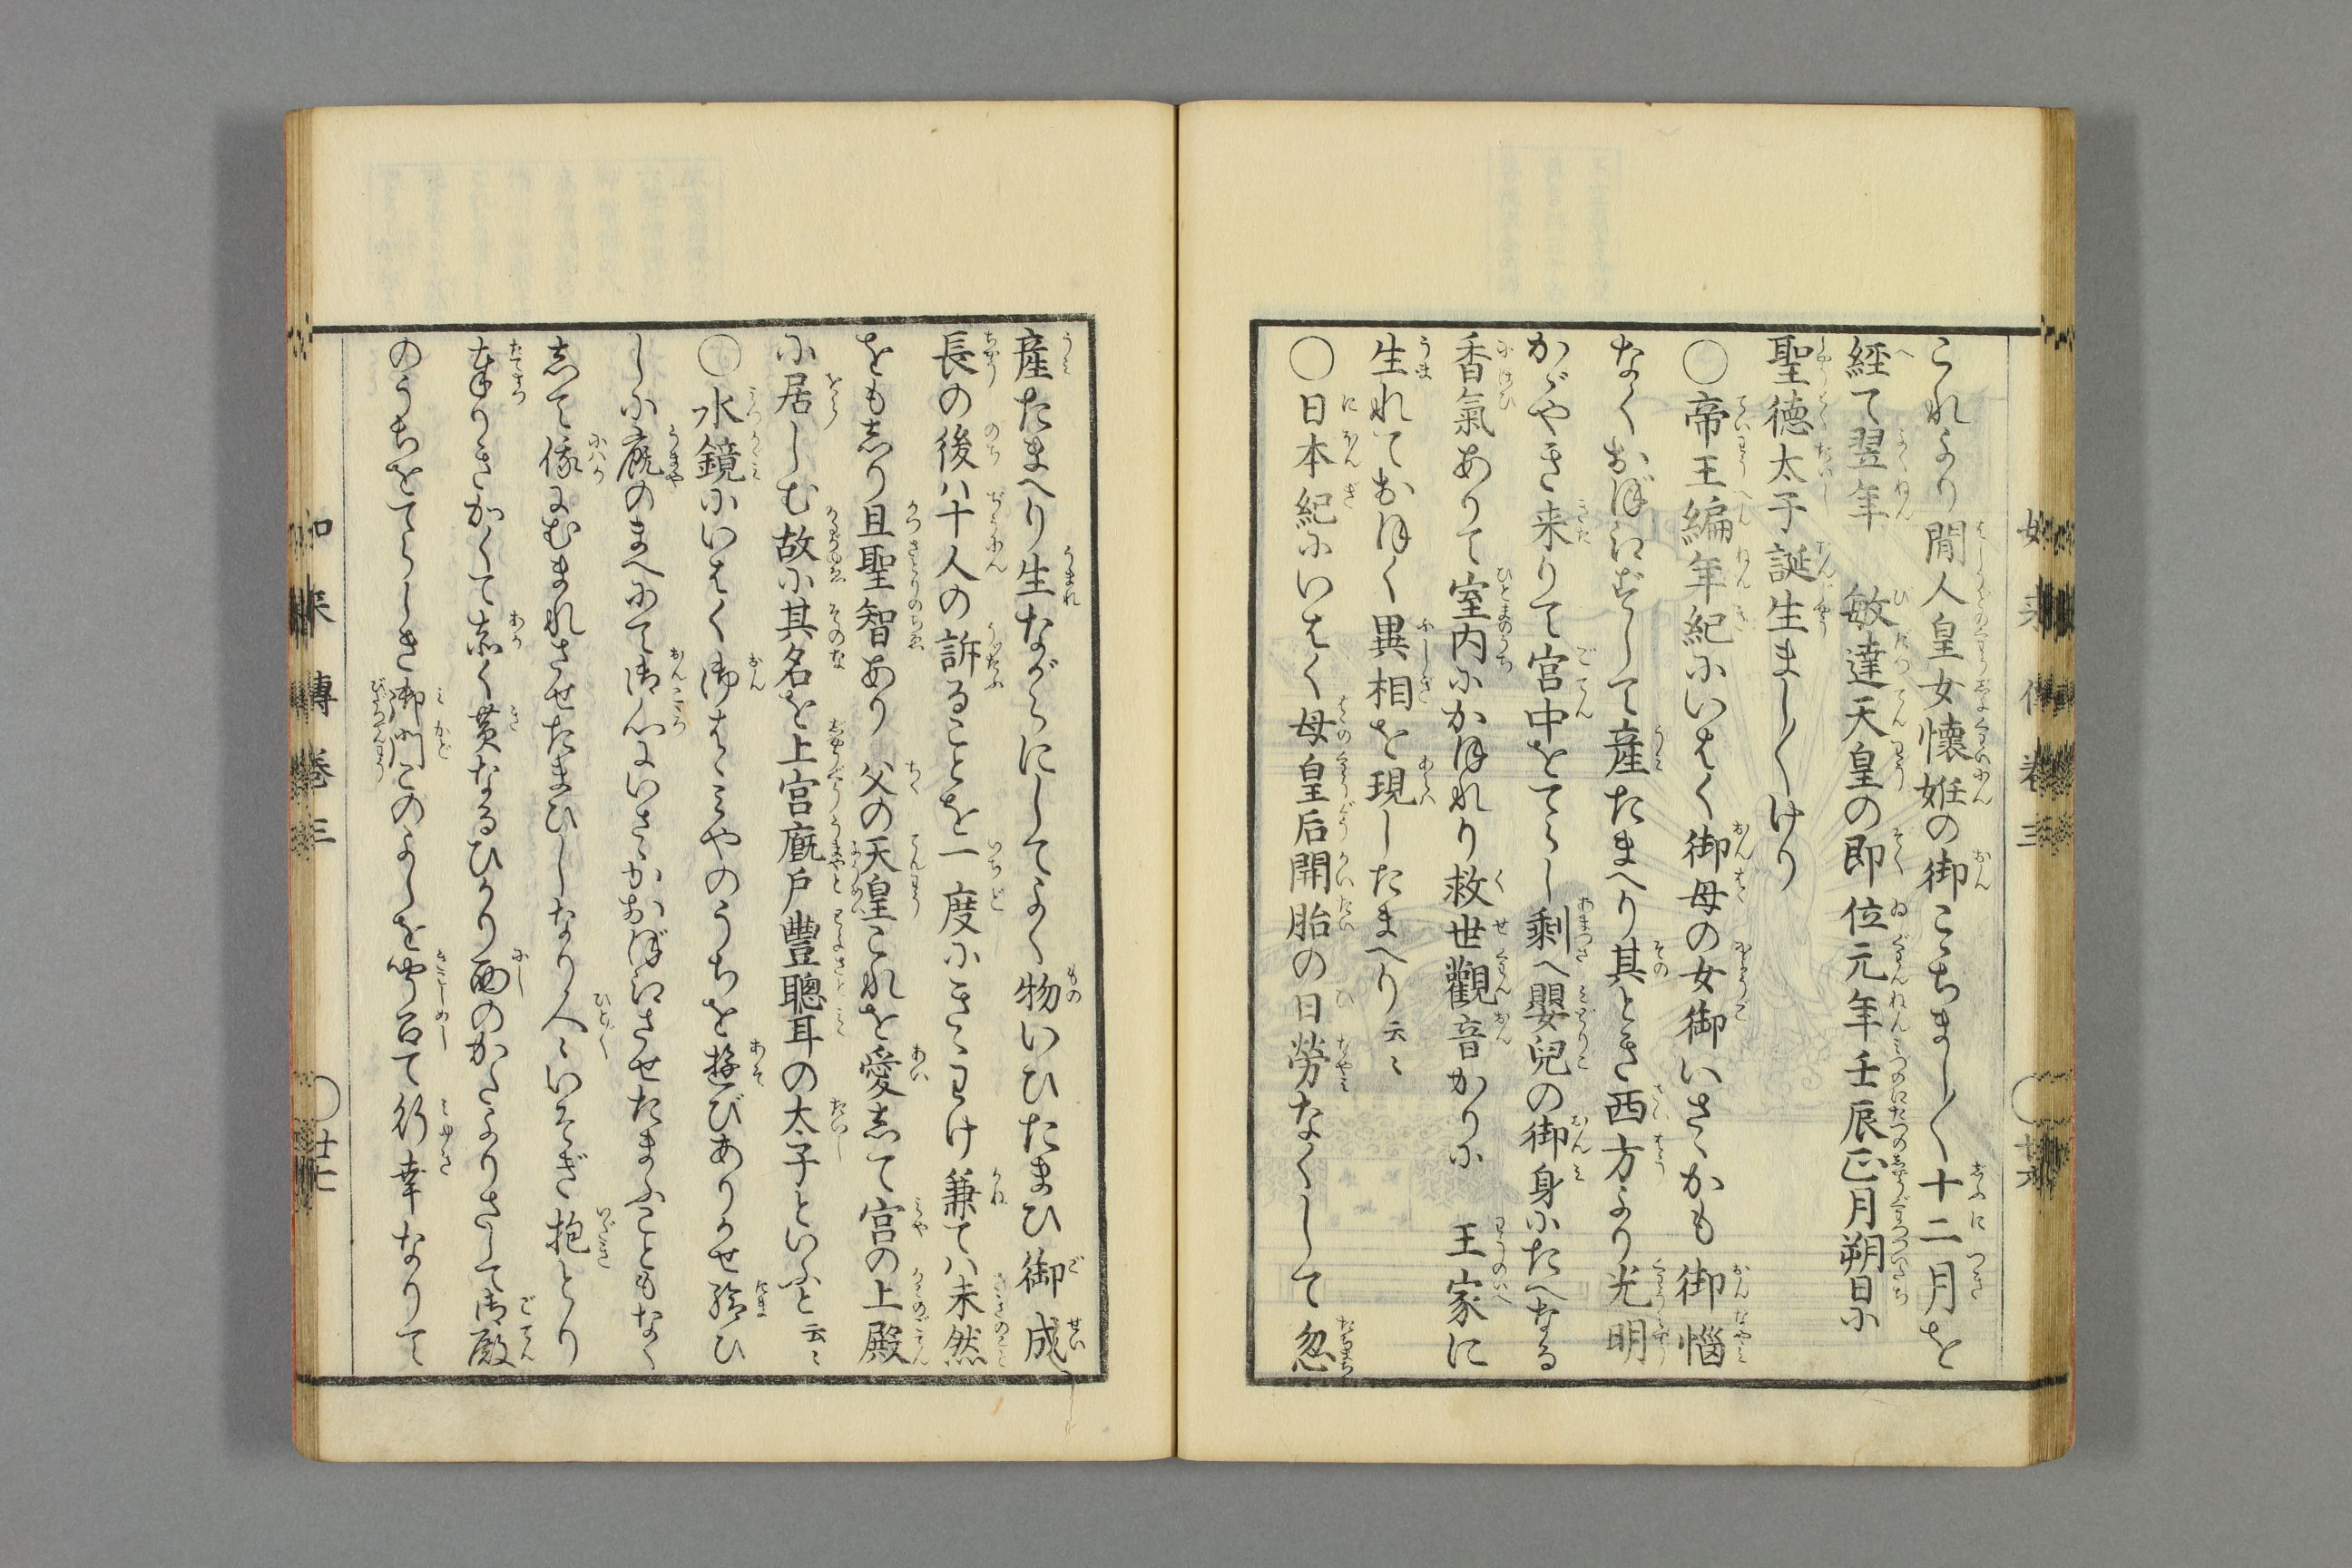 これより間人皇女懐姙の御こゝちまし〳〵十二月を
経て翌年　敏達天皇の即位元年壬辰正月朔日に
聖徳太子誕生まし〳〵けり
〇帝王編年紀にいはく御母の女御いさゝかも御悩
なくおぼえずして産たまへり其とき西方より光明
かゞやき来りて宮中をてらし剰へ嬰兒の御身にたへなる
香氣ありて室内にかほれり救世觀音かりに　王家に
生れておほく異相を現したまへり云々
〇日本紀にいはく母皇后開胎の日労なくして忽
産たまへり生ながらにしてよく物いひたまひ御成
長の後ハ十人の訴ることを一度にきゝわけ兼てハ未然
をもしり且聖智あり　父の天皇これを愛して宮の上殿
に居しむ故に其名を上宮廐戸豊聰耳の太子といふと云々
〇水鏡にいはく御はゝみやのうちを遊びありかせ給ひ
しに廐のまへにて御心にいさゝかおぼえさせたまふこともなく
して俄にむまれさせたまひしなり人〻いそぎ抱とり
奉りきかくて赤く黄なるひかり西のかたよりさして御殿
のうちをてらしき御門このよしを聞召て行幸なりて
如来傳巻三
〇廿七